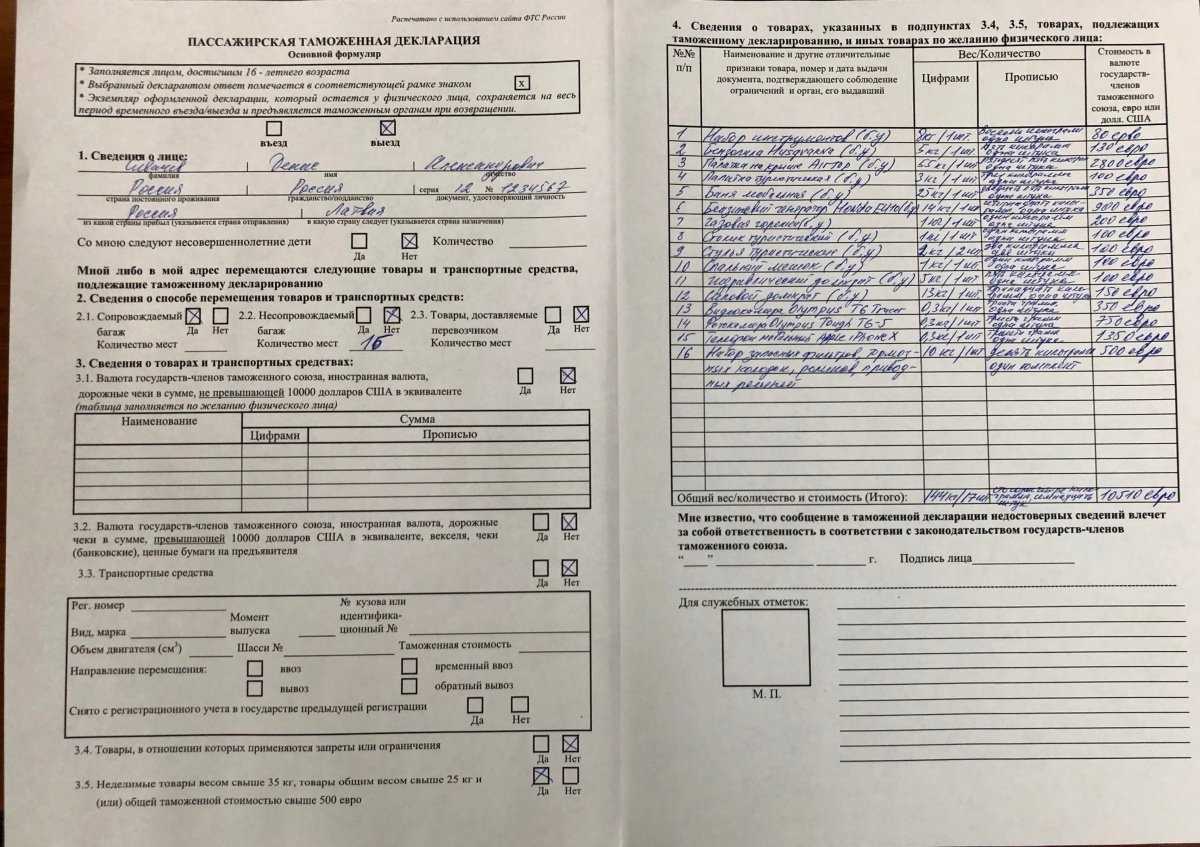 Распечатано с использованием сайта ФТС России
ПАССАЖИРСКАЯ ТАМОЖЕННАЯ ДЕКЛАРАЦИЯ
Основной формуляр
* Заполняется лицом, достигшим 16 - летнего возраста
* Выбранный декларантом ответ помечается в соответствующей рамке знаком x
* Экземпляр оформленной декларации, который остается у физического лица, сохраняется на весь
период временного въезда/выезда и предъявляется таможенным органам при возвращении.
въезд выезд
1. Сведения о лице:
Денис Александрович
фамилия имя отчество
Россия Россия серия 12 № 1234567
страна постоянного проживания гражданство/подданство документ, удостоверяющий личность
Россия Латвия
из какой страны прибыл (указывается страна отправления) в какую страну следует (указывается страна назначения)
Со мною следуют несовершеннолетние дети Да Нет Количество
Мной либо в мой адрес перемещаются следующие товары и транспортные средства,
подлежащие таможенному декларированию
2. Сведения о способе перемещения товаров и транспортных средств:
2.1. Сопровождаемый 2.2. Несопровождаемый 2.3. Товары, доставляемые
багаж Да Нет багаж Да Нет перевозчиком Да Нет
Количество мест Количество мест 16 Количество мест
3. Сведения о товарах и транспортных средствах:
3.1. Валюта государств-членов таможенного союза, иностранная валюта,
дорожные чеки в сумме, не превышающей 10000 долларов США в эквиваленте Да Нет
(таблица заполняется по желанию физического лица)
Наименование Сумма
Цифрами Прописью
3.2. Валюта государств-членов таможенного союза, иностранная валюта, дорожные
чеки в сумме, превышающей 10000 долларов США в эквиваленте, векселя, чеки Да Нет
(банковские), ценные бумаги на предъявителя
3.3. Транспортные средства Да Нет
Рег. номер № кузова или
Момент идентифика-
Вид, марка выпуска ционный №
Объем двигателя (см3) Шасси № Таможенная стоимость
Направление перемещения: ввоз временный ввоз
вывоз обратный вывоз
Снято с регистрационного учета в государстве предыдущей регистрации Да Нет
3.4. Товары, в отношении которых применяются запреты или ограничения Да Нет
3.5. Неделимые товары весом свыше 35 кг, товары общим весом свыше 25 кг и Да Нет
(или) общей таможенной стоимостью свыше 500 евро
4. Сведения о товарах, указанных в подпунктах 3.4, 3.5, товарах, подлежащих
таможенному декларированию, и иных товарах по желанию физического лица:
№№ п/п
Наименование и другие отличительные
признаки товара, номер и дата выдачи
документа, подтверждающего соблюдение
ограничений и орган, его выдавший
Вес/Количество
Цифрами Прописью
Стоимость в
валюте
государств-
членов
таможенного
союза, евро или
долл. США
1 Набор инструментов (б.у) 8кг/1шт. восемь килограмм одна штука 80 евро
2 Бензопила Husqvarna (б.у) 5кг/1шт. пять килограмм одна штука 130 евро
3 Палатка на крышу (б.у) 55кг/1шт. пятьдесят пять килограмм одна штука 2800 евро
4 Палатка туристическая (б.у) 3кг/1шт три килограмма одна штука 100 евро
5 Баня мобильная (б.у) 25кг/1шт двадцать пять килограмм одна штука 350 евро
6 Бензиновый генератор Honda 14кг/1шт одна штука 900 евро
7 Газовая горелка (б.у) 1кг/1шт один килограмм одна штука 200 евро
8 Столик туристический (б.у) 1кг/1шт один килограмм одна штука 100 евро
9 Стулья туристические (б.у) 2кг/2шт два килограмма две штуки 100 евро
10 Спальный мешок (б.у) 1кг/1шт. один килограмм одна штука 100 евро
11 Гидравлический домкрат (б.у) 5кг/1шт пять килограмм одна штука 100 евро
12 домкрат (б.у) 13кг/1шт тринадцать килограмм, одна штука 150 евро
13 Видеокамера Olympus 0,3кг/1шт триста грамм одна штука 350 евро
14 Фотокамера Olympus Tough TG-5 0,3кг/1шт триста грамм одна штука 750 евро
15 Телефон мобильный Apple iPhone X 0,3кг/1шт триста грамм одна штука 1350 евро
16 Набор запасных фильтров, тормоз- 10 кг/1шт десять килограмм 500 евро
ных колодок, роликов, привод- один комплект
ных ремней
Общий вес/количество и стоимость (Итого): 144кг/17шт сто сорок четыре килограмма, семнадцать штук 10510 евро
Мне известно, что сообщение в таможенной декларации недостоверных сведений влечет
за собой ответственность в соответствии с законодательством государств-членов
таможенного союза.
“ ” г. Подпись лица
Для служебных отметок:
М. П.